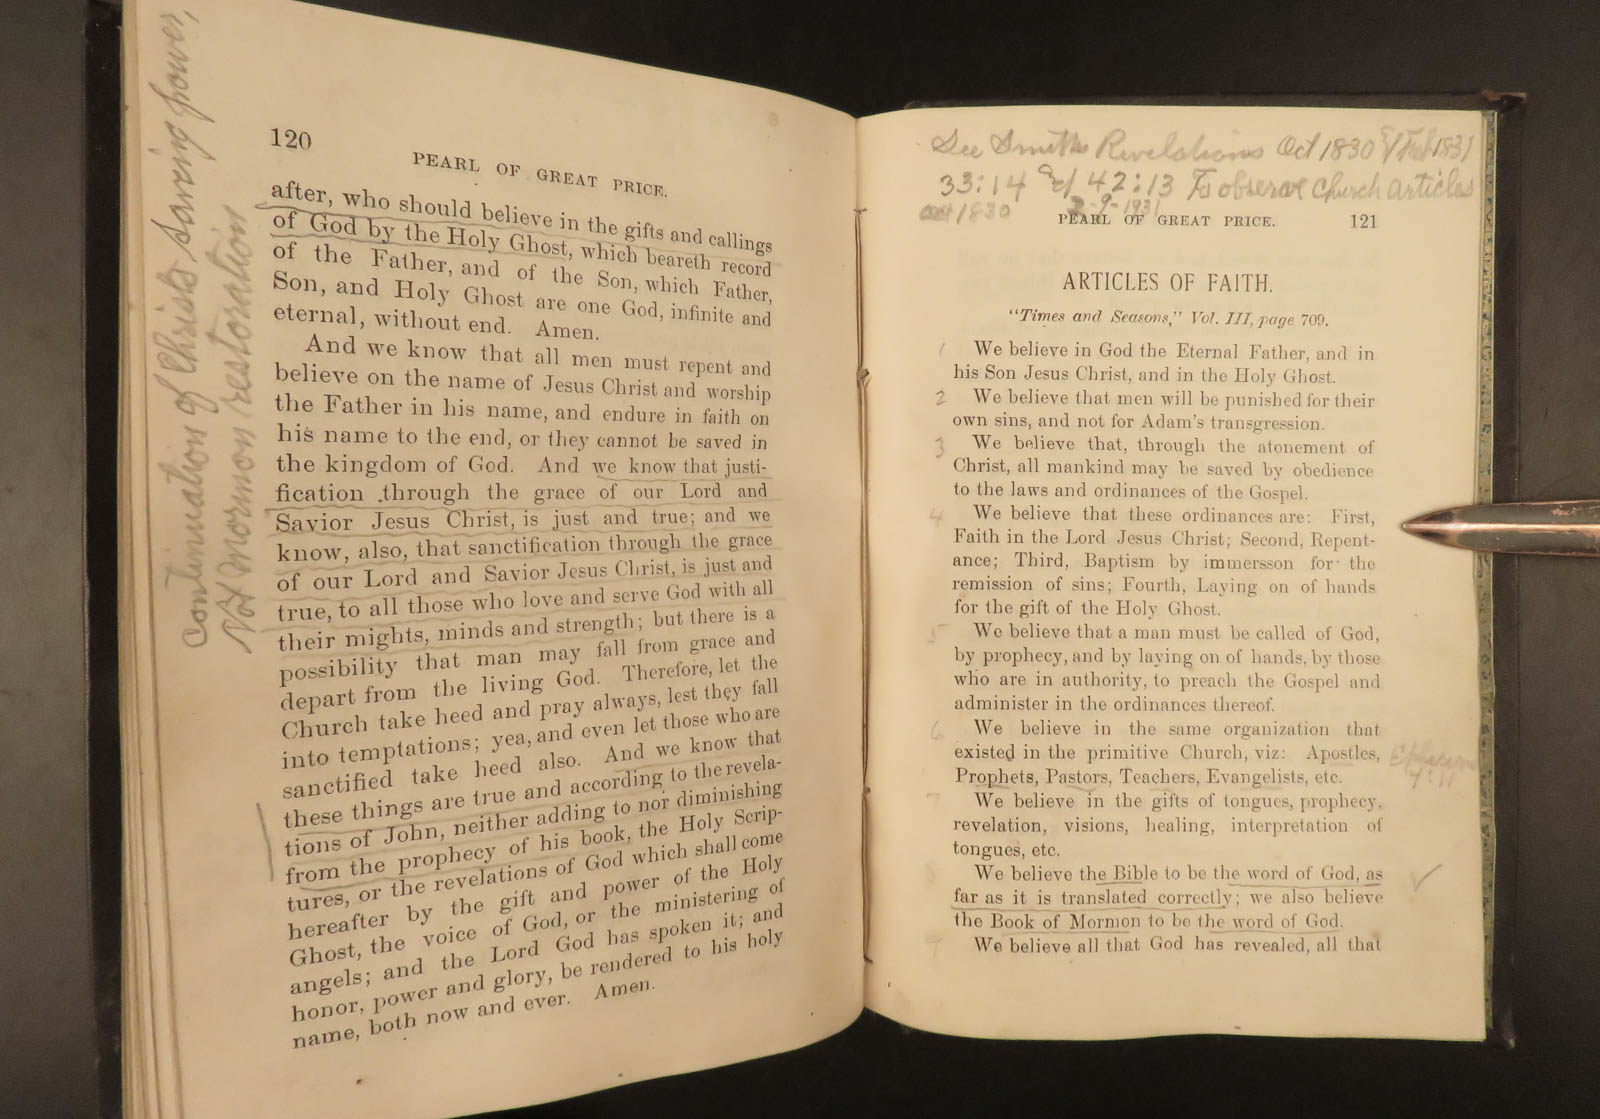 continuation of Christs saving power,
Not Mormon restoration
120
PEARL OF GREAT PRICE.
after, who should believe in the gifts and callings
of God by the Holy Ghost, which beareth record
of the Father, and of the Son, which Father,
Son, and Holy Ghost are one God, infinite and
eternal, without end. Amen.
And we know that all men must repent and
believe on the name of Jesus Christ and worship
the Father in his name, and endure in faith on
his name to the end, or they cannot be saved in
the kingdom of God. And we know that justi-
fication through the grace of our Lord and
Savior Jesus Christ, is just and true; and we
know, also, that sanctification through the grace
of our Lord and Savior Jesus Christ, is just and
true, to all those who love and serve God with all
their mights, minds and strength; but there is a
possibility that man may fall from grace and
depart from the living God. Therefore, let the
Church take heed and pray always, lest they fall
into temptations; yea, and even let those who are
sanctified take heed also. And we know that
these things are true and according to the revela-
tions of John, neither adding to nor diminishing
from the prophecy of his book, the Holy Scrip-
tures, or the revelations of God which shall come
hereafter by the gift and power of the Holy
Ghost, the voice of God, or the ministering of
angels; and the Lord God has spoken it; and
honor, power and glory, be rendered to his holy
name, both now and ever. Amen.
See Smiths Revelations Oct 1830 & Feb 1831
33:14 & 42:13 To observe Church articles
Oct 1830 2-9-1931
PEARL OF GREAT PRICE. 121
ARTICLES OF FAITH.
"Times and Seasons," Vol. III, page 709.
1 We believe in God the Eternal Father, and in
his Son Jesus Christ, and in the Holy Ghost.
2 We believe that men will be punished for their
own sins, and not for Adam's transgression.
3 We believe that, through the atonement of
Christ, all mankind may be saved by obedience
to the laws and ordinances of the Gospel.
4 We believe that these ordinances are: First,
Faith in the Lord Jesus Christ; Second, Repent-
ance; Third, Baptism by immersson for the
remission of sins; Fourth, Laying on of hands
for the gift of the Holy Ghost.
5 We believe that a man must be called of God,
by prophecy, and by laying on of hands, by those
who are in authority, to preach the Gospel and
administer in the ordinances thereof.
6 We believe in the same organization that
existed in the primitive Church, viz: Apostles,
Prophets, Pastors, Teachers, Evangelists, etc.
Ephesians
4:11
7 We believe in the gifts of tongues, prophecy,
revelation, visions, healing, interpretation of
tongues, etc.
8 We believe the Bible to be the word of God, as
far as it is translated correctly; we also believe
the Book of Mormon to be the word of God.
9 We believe all that God has revealed, all that